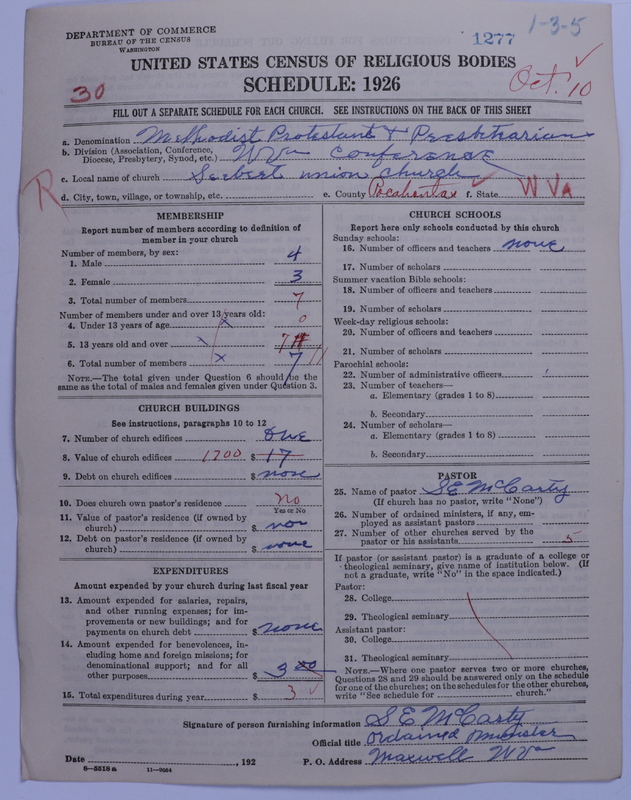 DEPARTMENT OF COMMERCE
BUREAU OF THE CENSUS
WASHINGTON
1277
1-3-5
UNITED STATES CENSUS OF RELIGIOUS BODIES
SCHEDULE: 1926
30
Oct. 10
FILL OUT A SEPARATE SCHEDULE FOR EACH CHURCH. SEE INSTRUCTIONS ON THE BACK OF THIS SHEET
a. Denomination Methodist Protestant + Presbtnarian
b. Division (Association, Conference, Diocese, Presbytery, Synod, etc.) W Va Conference
c. Local name of church Seebert union church
R
d. City, town, village, or township, etc. e. County Pocahontas f. State W Va
MEMBERSHIP
Report number of members according to definition of
member in your church
Number of members, by sex:
1. Male 4
2. Female 3
3. Total number of members 7
Number of members under and over 13 years old:
4. Under 13 years of age 0
5. 13 years old and over 7
6. Total number of members 7
NOTE.—The total given under Question 6 should be the
same as the total of males and females given under Question 3.
CHURCH BUILDINGS
See instructions, paragraphs 10 to 12
7. Number of church edifices one
8. Value of church edifices 1700 $ 17
9. Debt on church edifices $ none
10. Does church own pastor's residence No
Yes or No
11. Value of pastor's residence (if owned by
church) $ non
12. Debt on pastor's residence (if owned by
church) $ none
EXPENDITURES
Amount expended by your church during last fiscal year
13. Amount expended for salaries, repairs,
and other running expenses; for im-
provements or new buildings; and for
payments on church debt $ none
14. Amount expended for benevolences, in-
cluding home and foreign missions; for
denominational support; and for all
other purposes $ 3 00
15. Total expenditures during year $ 3
CHURCH SCHOOLS
Report here only schools conducted by this church
Sunday schools:
16. Number of officers and teachers none
17. Number of scholars
Summer vacation Bible schools:
18. Number of officers and teachers
19. Number of scholars
Week-day religious schools:
20. Number of officers and teachers
21. Number of scholars
Parochial schools:
22. Number of administrative officers
23. Number of teachers—
a. Elementary (grades 1 to 8)
b. Secondary
24. Number of scholars—
a. Elementary (grades 1 to 8)
b. Secondary
PASTOR
25. Name of pastor S E McCarty
(If church has no pastor, write "None")
26. Number of ordained ministers, if any, em-
ployed as assistant pastors
27. Number of other churches served by the
pastor or his assistants 5
If pastor (or assistant pastor) is a graduate of a college or
theological seminary, give name of institution below. (If
not a graduate, write "No" in the space indicated.)
Pastor:
28. College
29. Theological seminary
Assistant pastor:
30. College
31. Theological seminary
NOTE.—Where one pastor serves two or more churches,
Questions 28 and 29 should be answered only on the schedule
for one of the churches; on the schedules for the other churches,
write "See schedule for church."
Signature of person furnishing information S E McCarty
Official title ordained minister
Date , 192 P. O. Address Maxwell W Va
8—5518a 11—9064